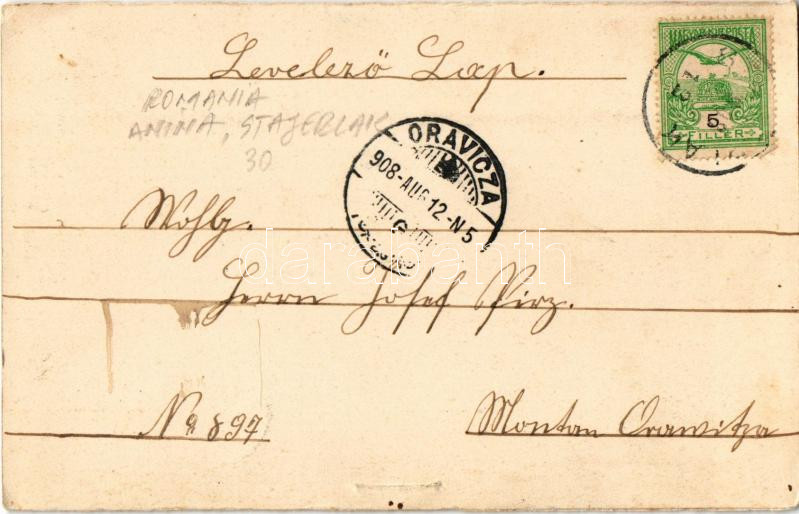 Levelező Lap.
ROMANIA
ANINA, STAJERLAK
30
5
FILLER
ORAVICZA
908-AUG 12-N5
Wohlg.
Herrn Josef Pirz.
No 897
Montan Orawitza
darabanth